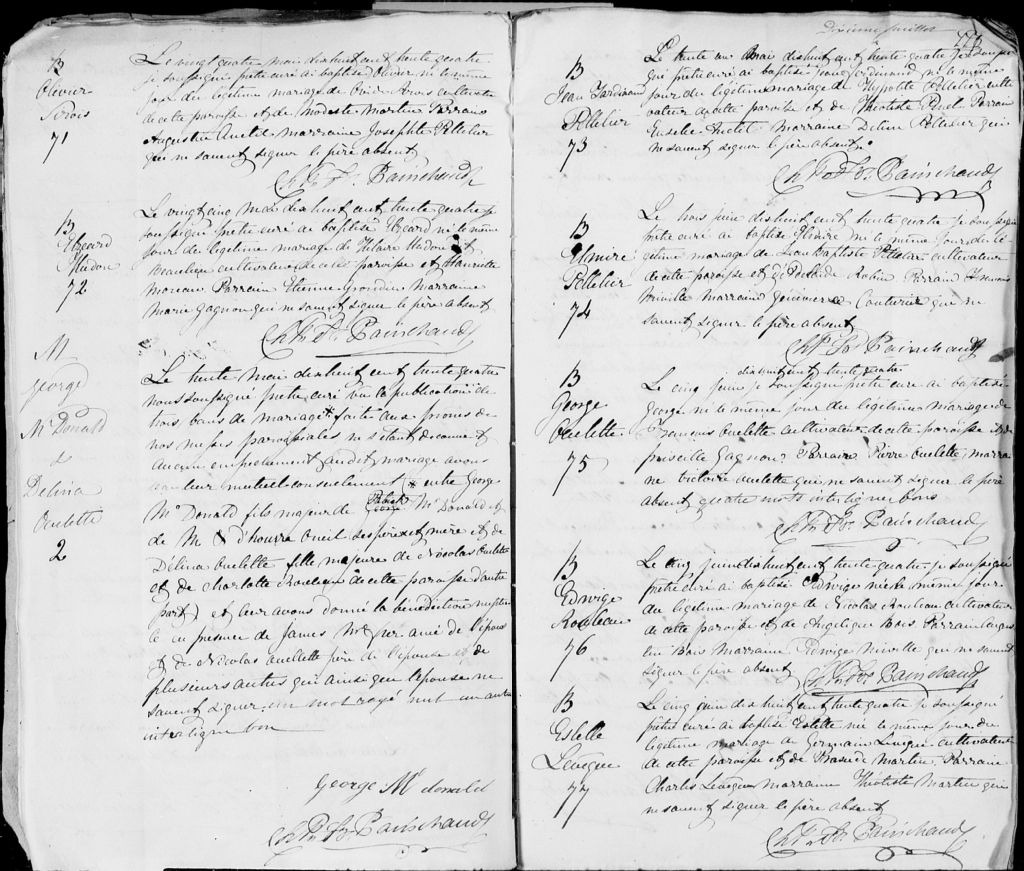 B
Olivier
Sirois
71
Le vingt quatre mai dix huit cent trente quatre
je soussigné prêtre curé ai baptisé Olivier né le même
jour du légitime mariage de Sirois cultivateur
de cette paroisse et de Modeste Martin Parrain
Augustin Anctil Marraine Josephte Pelletier
qui ne savent signer le père absent
Chs Fs Painchaud
B
Elzeard
Hudon
72
Le vingt cinq mai dix huit cent trente quatre je
soussigné prêtre curé ai baptisé Elzeard né le même
jour du légitime mariage de Hilaire Hudon dit
Beaulieu cultivateur de cette paroisse et Henriette
Moreau Parrain Etienne Grondin Marraine
Marie Gagnon qui ne savent signer le père absent
Chs Fs Painchaud
M
George
Mc Donald
&
Delina
Ouelette
2
Le trente mai dix huit cent trente quatre
nous soussigné prêtre curé vu la publication de
trois bans de mariage faite aux prônes de
nos messes paroissiales ne s'étant découvert
aucun empêchement audit mariage avons
reçu leur mutuel consentement entre George
Mc Donald fils majeur de Mc Donald et
de M ses père et mère et de
Délina Ouelette fille majeure de Nicolas Ouelette
et de Charlotte Rouleau de cette paroisse d'autre
part) et leur avons donné la bénédiction nuptia
le en présence de James ami de l'époux
et de Nicolas Ouellette père de l'épouse et de
plusieurs autres qui ainsi que l'épouse ne
savent signer. un mot rayé nul un autre
interligne bon
George Mc donald
Chs Fs Painchaud
Dixième feuillet
B
Jean Ferdinand
Pelletier
73
Le trente un Mai dix huit cent trente quatre je soussi
gné prêtre curé ai baptisé Jean Ferdinand né le même
jour du légitime mariage de Hypolite Pelletier culti
vateur de cette paroisse et de Théotiste Pinel Parrain
Eusèbe Anctil Marraine Deline Pelletier qui
ne savent signer le père absent.
Chs Fs Painchaud
B
Elmire
Pelletier
74
Le trois juin dix huit cent trente quatre je soussigné
prêtre curé ai baptisé Elmire né le même jour du lé
gitime mariage de Jean Baptiste Pelletier cultivateur
de cette paroisse et de Adelaide Robin Parrain
Miville Marraine Geneviève Couturier qui ne
savent signer le père absent
Chs Fs Painchaud
B
George
Ouelette
75
dix huit cent trente quatre
Le cinq juin je soussigné prêtre curé ai baptisé
George né le même jour du légitime mariage de
François Ouelette cultivateur de cette paroisse et de
Priscille Gagnon Parrain Pierre Ouelette marrai
ne Victoire Ouelette qui ne savent signer le père
absent quatre mots interligne bons
Chs Fs Painchaud
B
Edwige
Rouleau
76
Le cinq juin dix huit cent trente quatre je soussigné
prêtre curé ai baptisé Edwige née le même jour
du légitime mariage de Nicolas Rouleau cultivateur
de cette paroisse et de Angelique Bois Parrain Augus
tin Bois Marraine Edwige Miville qui ne savent
signer le père absent
Chs Fs Painchaud
B
Estelle
Levêque
77
Le cinq juin dix huit cent trente quatre je soussigné
prêtre curé ai baptisé Estelle née le même jour du
légitime mariage de Germain Levêque cultivateur
de cette paroisse et de Martin. Parrain
Charles Levêque Marraine Théotiste Martin qui
ne savent signer le père absent
Chs Fs Painchaud